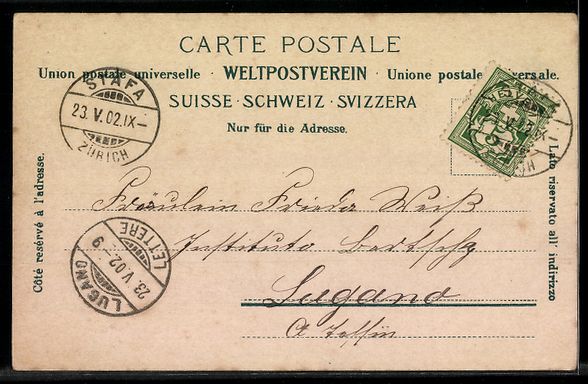 CARTE POSTALE
Union postale universelle · WELTPOSTVEREIN · Unione postale universale.
SUISSE · SCHWEIZ · SVIZZERA
Nur für die Adresse.
STÄFA
23. V. 02. IX—
ZÜRICH
Côté reservé à l'adresse.
Lato riservato all' indirizzo
Fräulein Frieda Weiß
Instituto
Lugano
LETTERE
23. V. 02 - 9
LUGANO